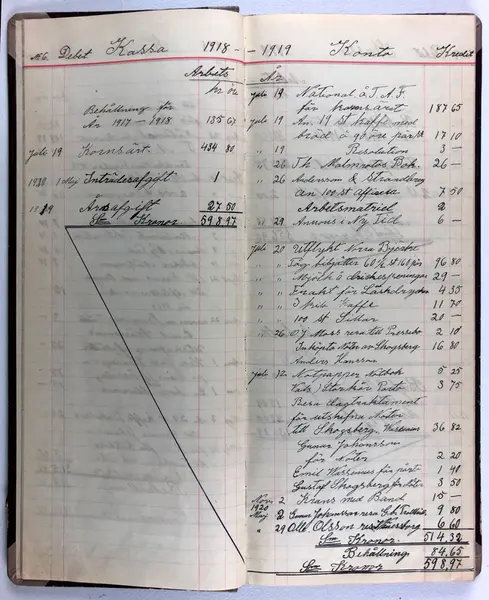 N:6. Debet Kassa 1918 -
Arbets
Kr Öre
Behållning för
År 1917 – 1918 135 67
Juli 19 Konsärt. 434 80
1920 1 Maj Inträdesafgift 1
Årsafgift 27 50
Sm Kronor 598,97
- 1919 Konto Kredit
År
Juli 19 National å T.A.F
för konsärt 187 65
Juli 19 An. 19 st kaffe med
bröd å 90 öre 17 10
" 19 Resolution 3 —
" 26 Th. Malmrotos Bok. 26 —
" 26 Anderson & Strandberg
An 100 st Affischer 7 50
Arbetsmatriel 2
" 29 Annons i Ny Tid 6 —
Juli 20 Utflykt Norra
" " Tåg biljätter 60 st 96 80
" " Mjölk å 29 —
" " Frakt för 4 35
" " 3 kilo Kaffe 11 70
" " 100 st 20 —
" 26 O.J. Moss resa till 2 10
Inköpta Noter av Skogsberg 16 80
Anders Hansson
Juli 12 Notpapper Notbok 5 25
Porto 3 75
Resa dagtraktament
för utskrifna Noter
till Skogsberg, Wassenius 36 82
Gunar Johansson
för noter 2 20
Emil Wassenius för porto 1 40
Gustaf Skogsberg för noter 3 50
Nov. 2 Krans med Band 15 —
1920
Maj. 2 Gunar Johansson resa 9 80
" 29 Olle Olsson resa 6 60
Sm Kronor. 514,32
Behållning. 84,65
Sm Kronor 598,97